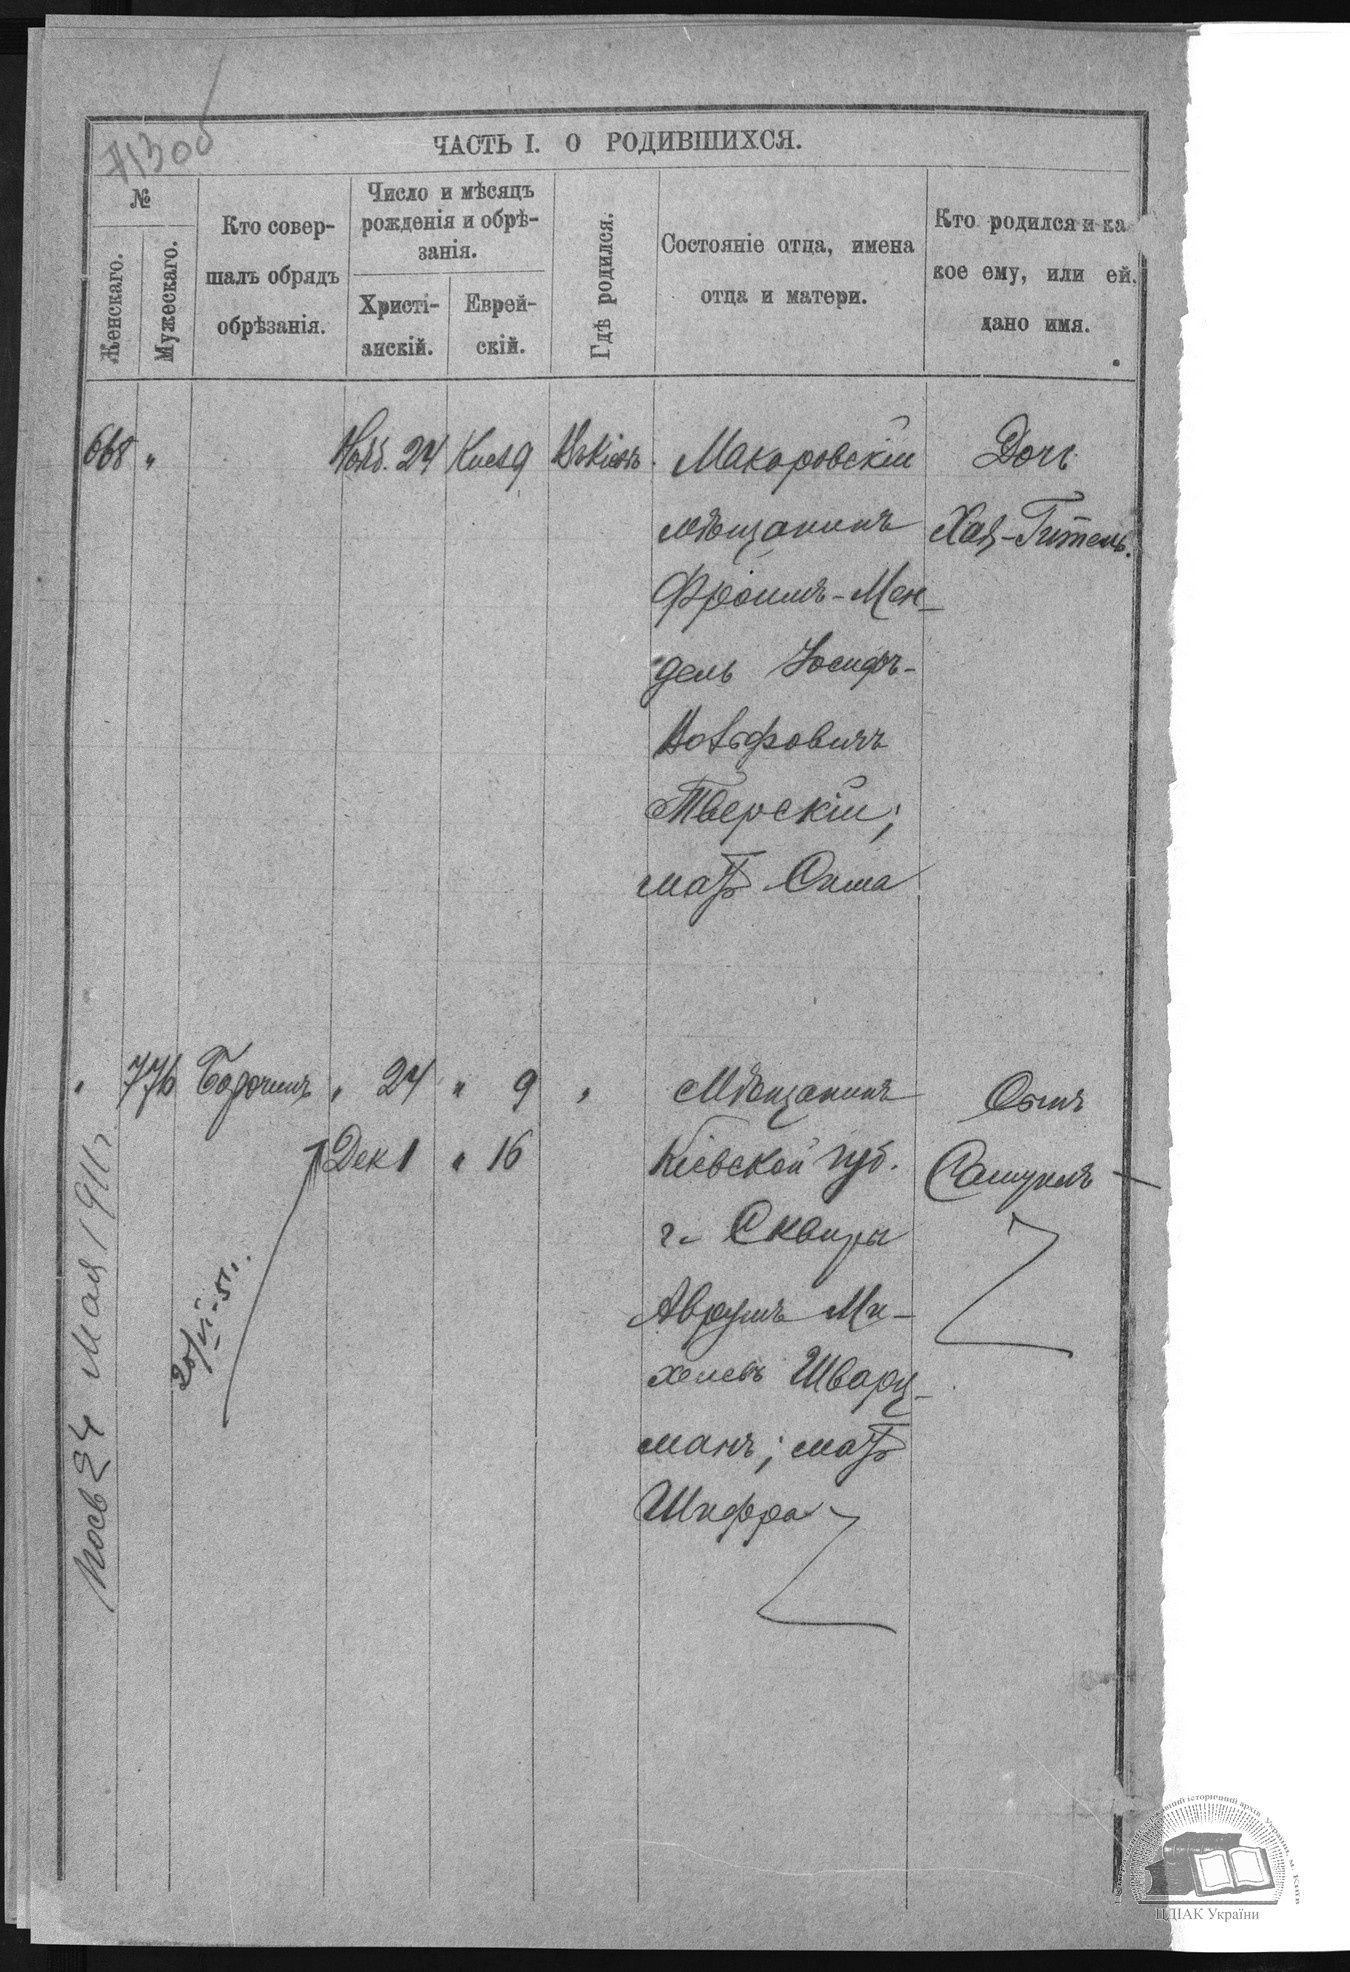 713об
ЧАСТЬ I. О РОДИВШИХСЯ.
№
Женскаго.
Мужескаго.
Кто совер-
шалъ обрядъ
обрѣзанія.
Число и мѣсяцъ
рожденія и обрѣ-
занія.
Христі-
анскій.
Еврей-
скій.
Гдѣ родился.
Состояніе отца, имена
отца и матери.
Кто родился и ка
кое ему, или ей,
дано имя.
668 „ Нояб. 24 Кисл 9 Въ Кіевѣ.
Макаровскій
мѣщанинъ
Фроимъ-Мен-
дель Іосифъ-
Вольфовичъ
Тверскій;
мать Сима
Дочь
Хая-Гитель.
„ 776 Бодочинъ „ 24 „ 9 „
Дек 1 „ 16
Мѣщанинъ
Кіевской губ.
г. Сквиры
Аврумъ Ми-
хелевъ Шварц-
манъ; мать
Шифра
Сынъ
Самуилъ
24 Мая 1911г.
20/VI-51г.
ЦДІАК України